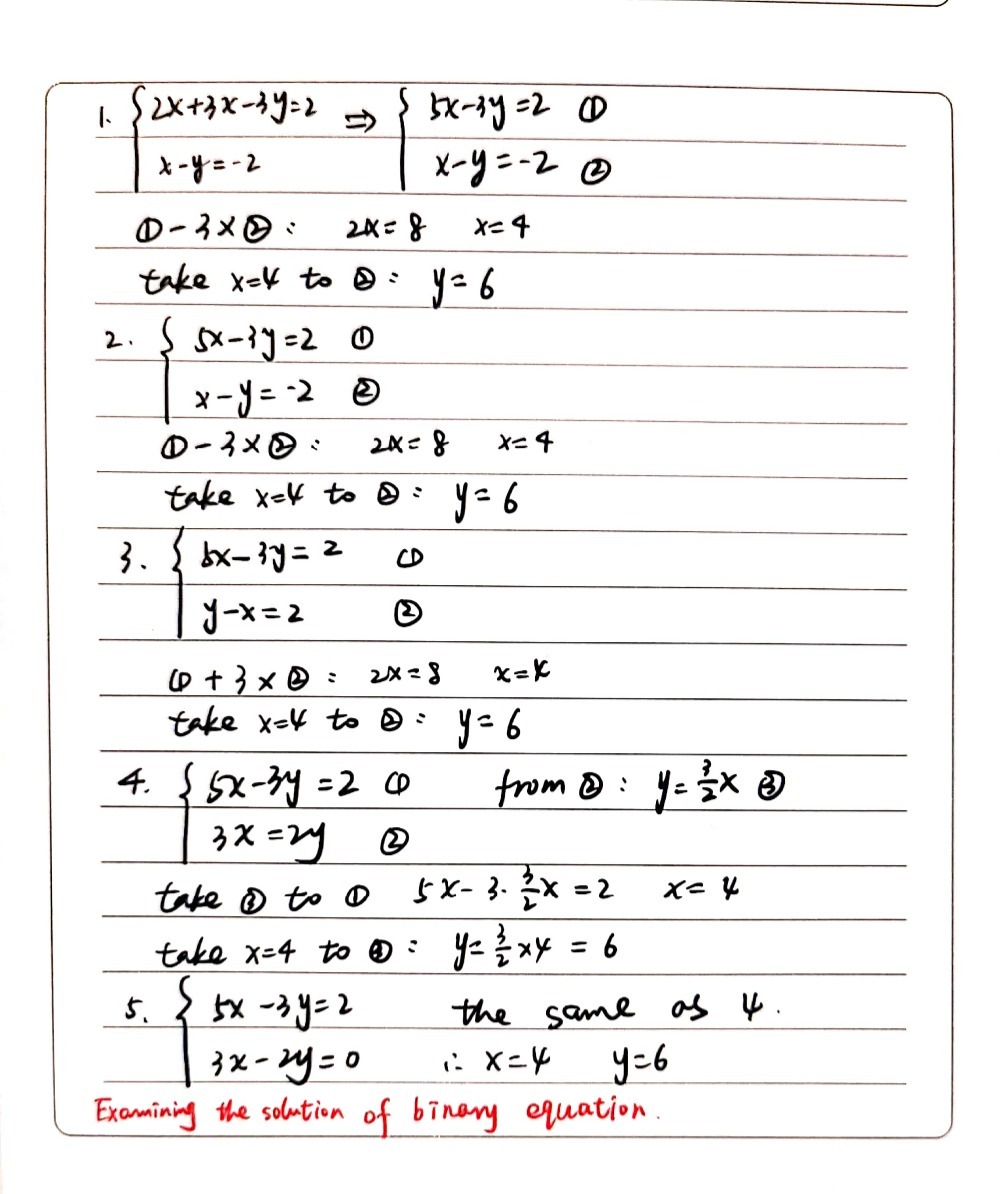 1. { 2x+3x-3y=2 ⇒ { 5x-3y=2 ①
x-y=-2 x-y=-2 ②
①-3×②: 2x=8 x=4
take x=4 to ②: y=6
2. { 5x-3y=2 ①
x-y=-2 ②
①-3×②: 2x=8 x=4
take x=4 to ②: y=6
3. { 5x-3y=2 ①
y-x=2 ②
①+3×②: 2x=8 x=4
take x=4 to ②: y=6
4. { 5x-3y=2 ① from ②: y=3/2x ③
3x=2y ②
take ③ to ① 5x-3·3/2x=2 x=4
take x=4 to ③: y=3/2×4=6
5. { 5x-3y=2 the same as 4.
3x-2y=0 ∴ x=4 y=6
Examining the solution of binary equation.